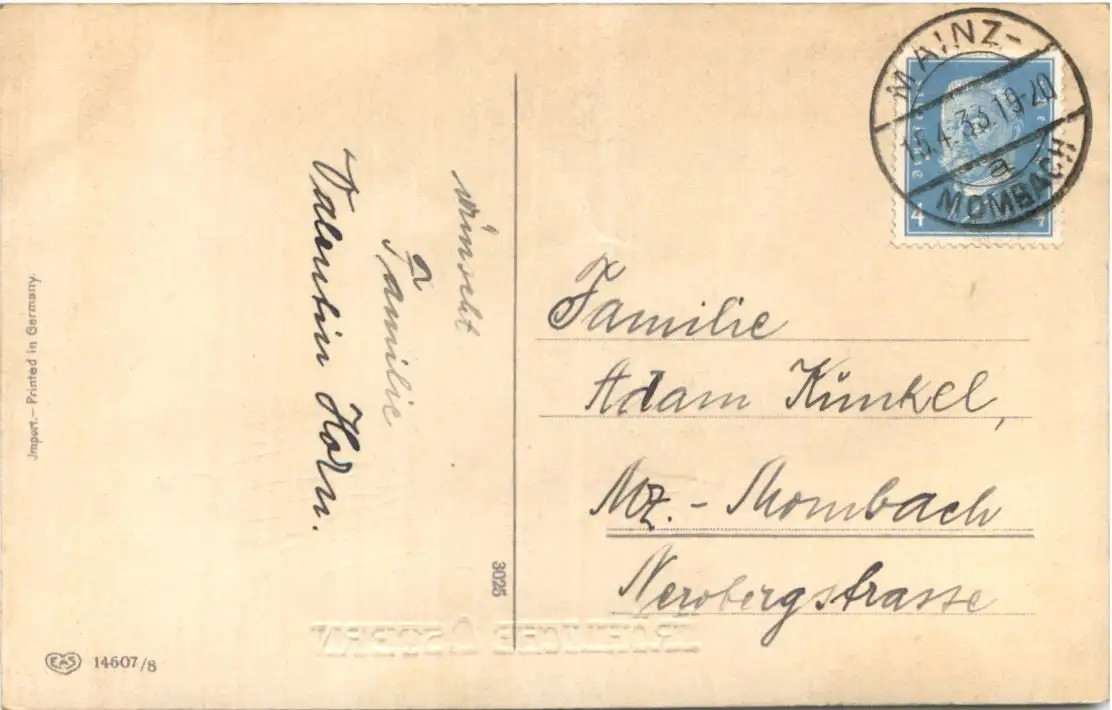 wünscht
Familie
Valentin Horn.
Familie
Adam Künkel,
Mz. - Mombach
Nerobergstrasse
MAINZ-
15.4.33.19-20
a
MOMBACH
4
4
3025
Jmport. – Printed in Germany.
EAS 14607/8
FRÖHLICHE OSTERN